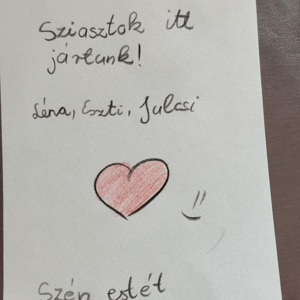 Sziasztok itt
jártunk!
Léna, Eszti, Julcsi
Szép estét